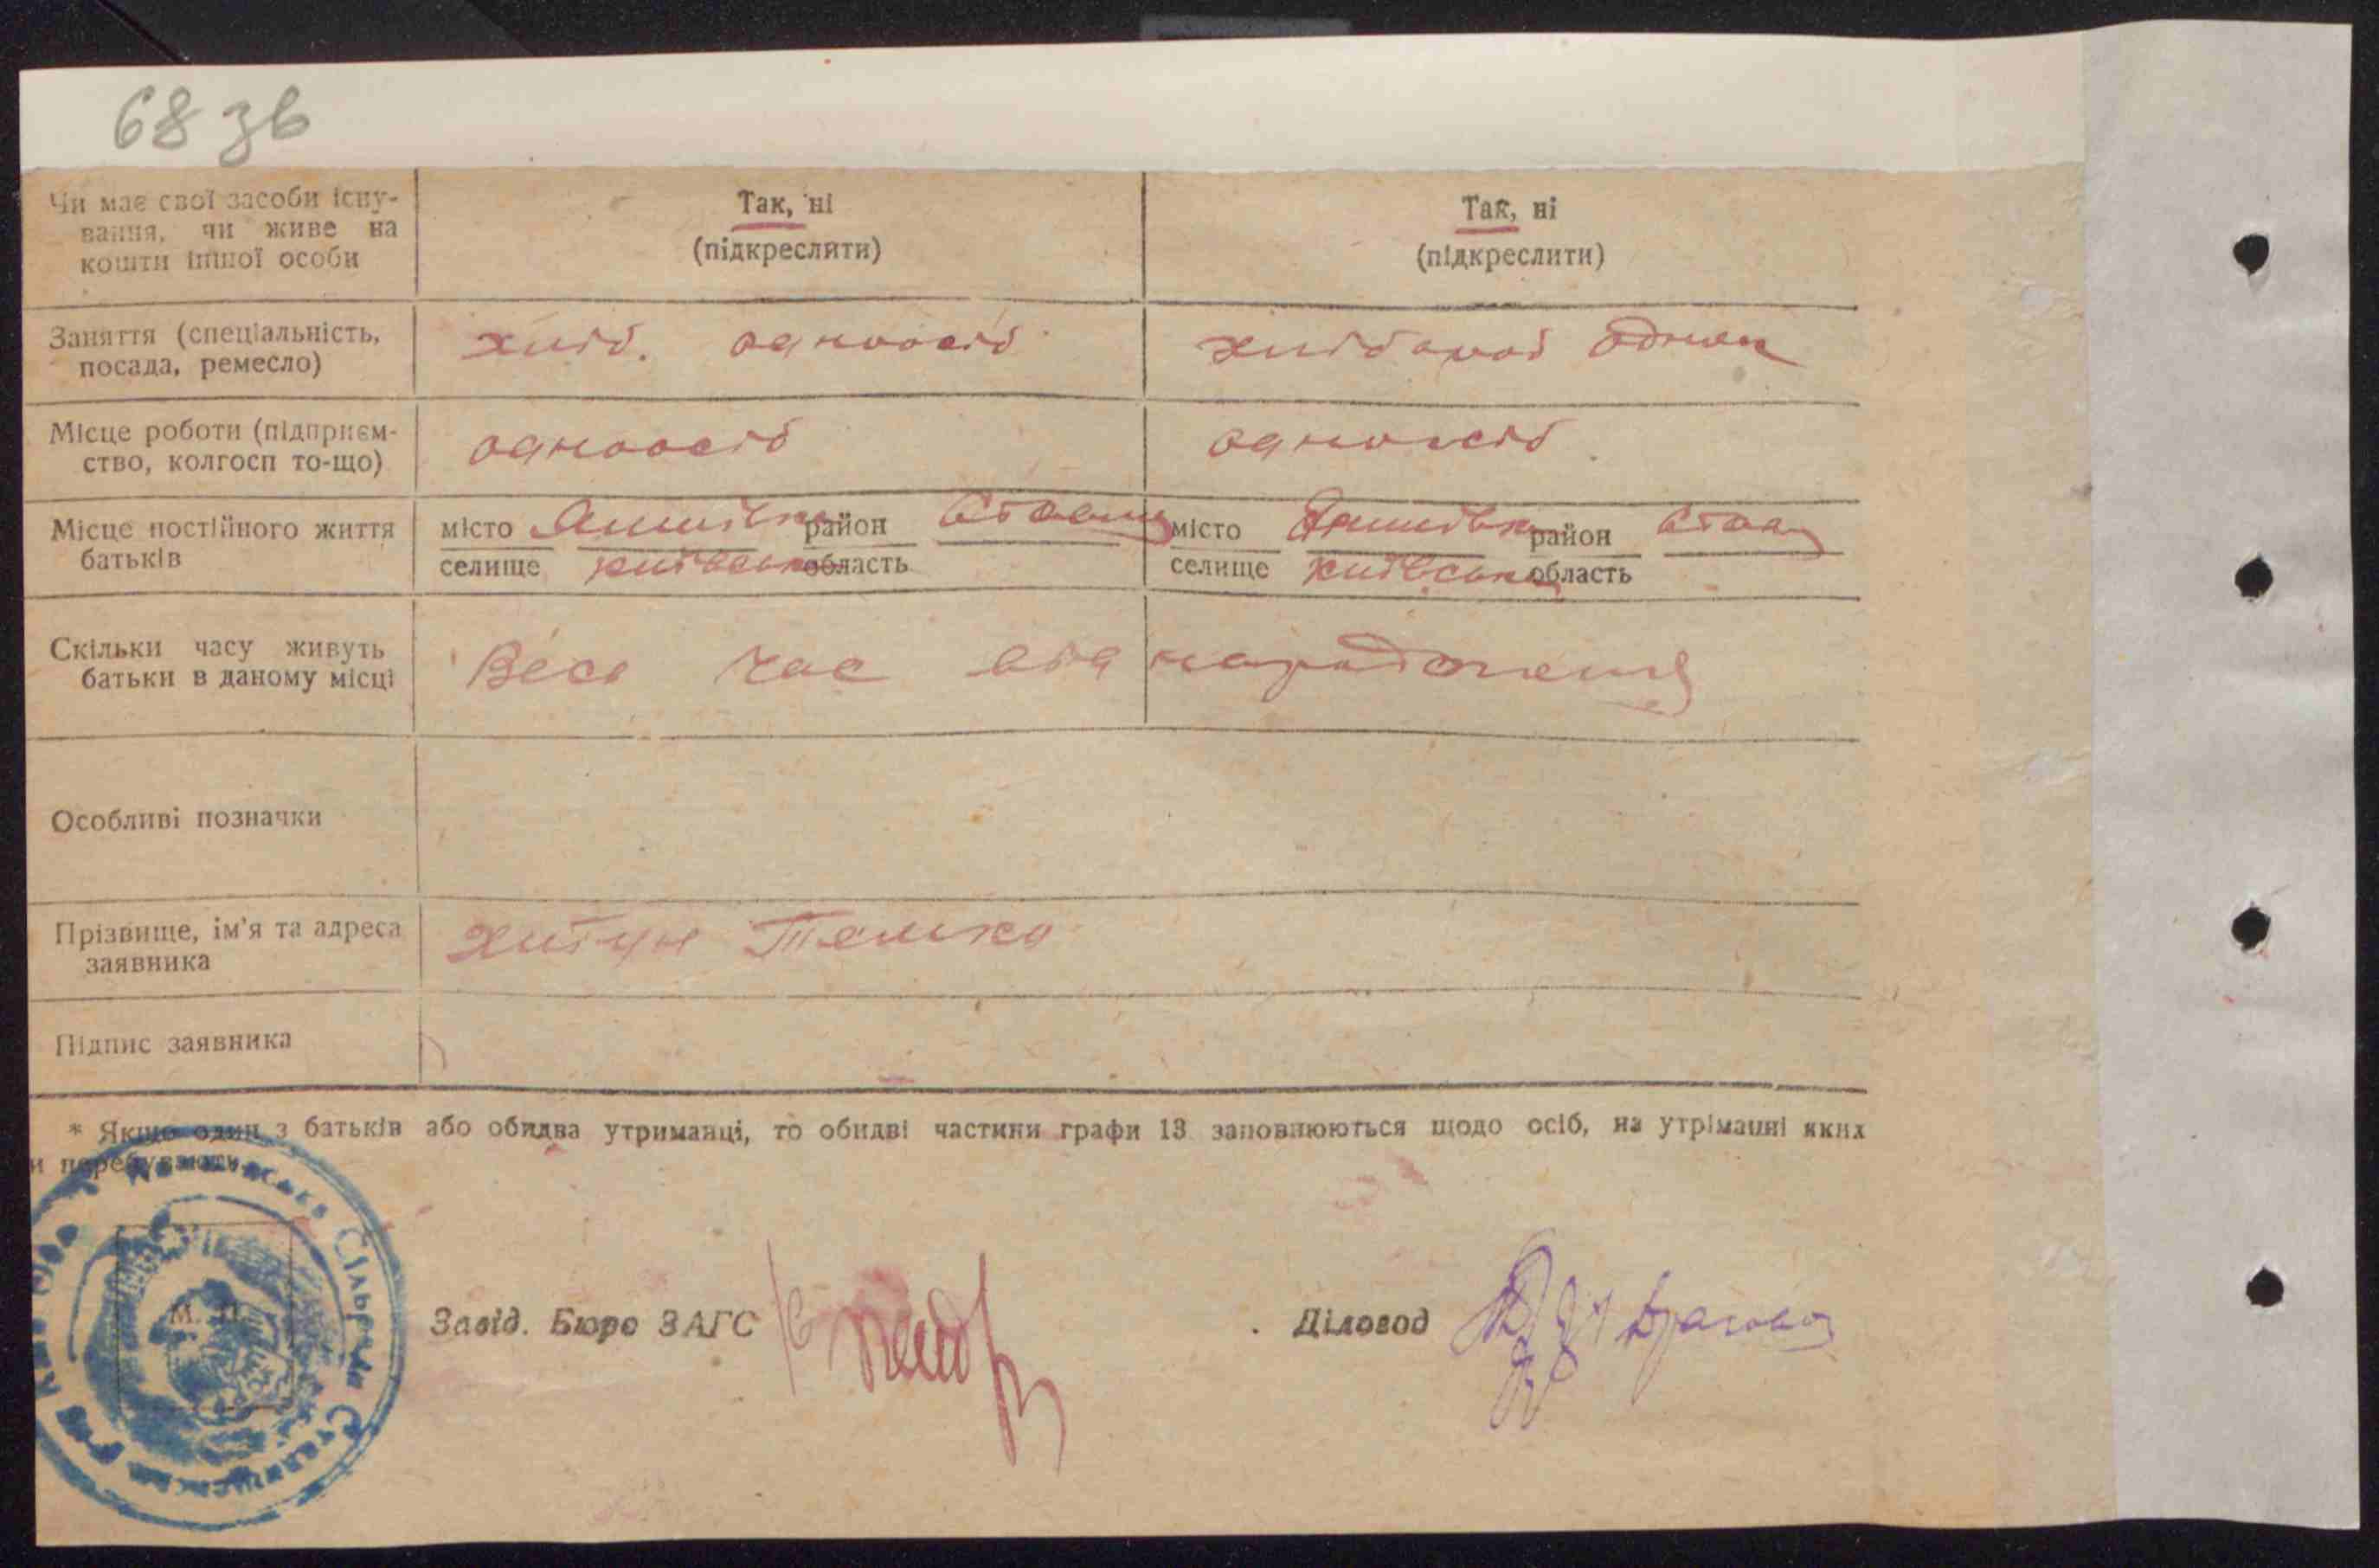 68 зв
Чи має свої засоби існу-
вання, чи живе на
кошти іншої особи
Так, ні
(підкреслити)
Так, ні
(підкреслити)
Заняття (спеціальність,
посада, ремесло)
хліб. одноосіб
хлібороб однок
Місце роботи (підприєм-
ство, колгосп то-що)
одноосіб
одноосіб
Місце постійного життя
батьків
місто район
селище київська область
місто район
селище київська область
Скільки часу живуть
батьки в даному місці
Весь час від народження
Особливі позначки
Прізвище, ім'я та адреса
заявника
Підпис заявника
* Якщо один з батьків або обидва утриманці, то обидві частини графи 13 заповнюються щодо осіб, на утріманні яких
и перебувають.
Сільрада
М. П.
Завід. Бюро ЗАГС
Діловод